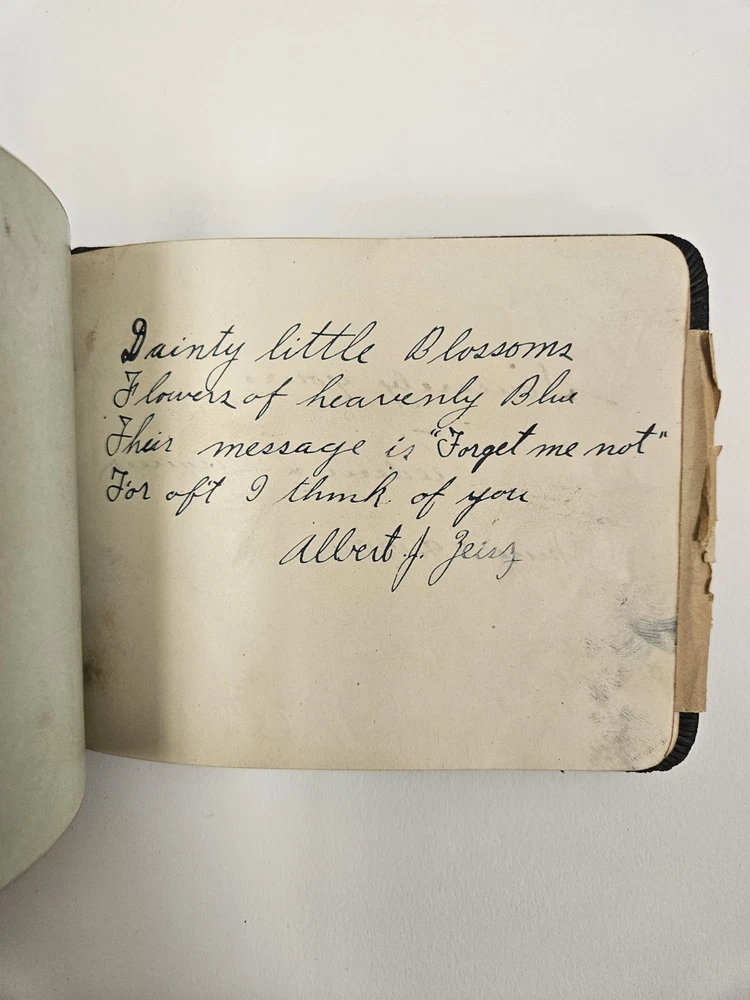 Dainty little Blossoms
Flowers of heavenly Blue
Their message is "Forget me not"
For oft I think of you
Albert J. Zeisz